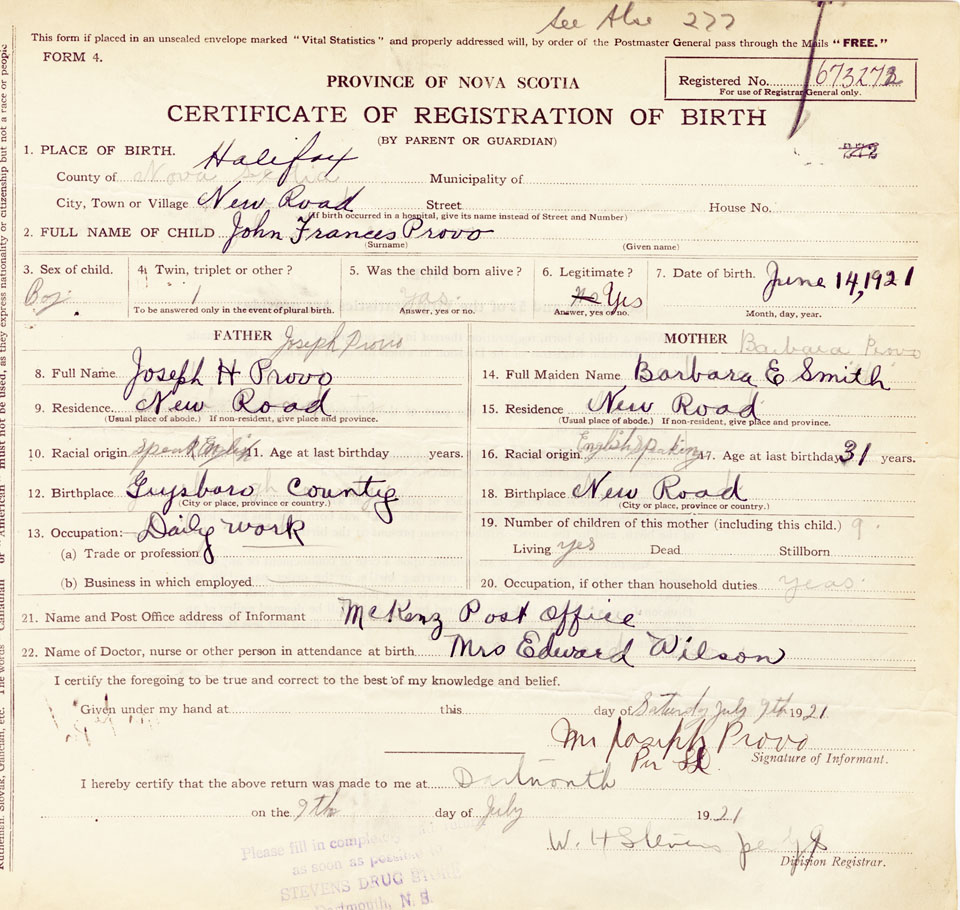 See Also 277
This form if placed in an unsealed envelope marked "Vital Statistics" and properly addressed will, by order of the Postmaster General pass through the Mails "FREE."
FORM 4.
PROVINCE OF NOVA SCOTIA
Registered No. 673272
For use of Registrar General only.
CERTIFICATE OF REGISTRATION OF BIRTH
(BY PARENT OR GUARDIAN)
1. PLACE OF BIRTH. Halifax
County of Nova Scotia Municipality of
City, Town or Village New Road Street House No.
(If birth occurred in a hospital, give its name instead of Street and Number)
2. FULL NAME OF CHILD John Frances Provo
(Surname) (Given name)
3. Sex of child. 4. Twin, triplet or other? 5. Was the child born alive? 6. Legitimate? 7. Date of birth. June 14, 1921
Boy 1 yas. No Yes
To be answered only in the event of plural birth. Answer, yes or no. Answer, yes or no. Month, day, year.
FATHER Joseph Provo
8. Full Name Joseph H Provo
9. Residence New Road
(Usual place of abode.) If non-resident, give place and province.
10. Racial origin 11. Age at last birthday years.
12. Birthplace Guysboro County
(City or place, province or country.)
13. Occupation:— Daily work
(a) Trade or profession
(b) Business in which employed
MOTHER Barbara Provo
14. Full Maiden Name Barbara E Smith
15. Residence New Road
(Usual place of abode.) If non-resident, give place and province.
16. Racial origin English Speaking 17. Age at last birthday 31 years.
18. Birthplace New Road
(City or place, province or country.)
19. Number of children of this mother (including this child.) 9.
Living yes Dead Stillborn
20. Occupation, if other than household duties yeas
21. Name and Post Office address of Informant McKenz Post office
22. Name of Doctor, nurse or other person in attendance at birth Mrs Edward Wilson
I certify the foregoing to be true and correct to the best of my knowledge and belief.
Given under my hand at this day of Saturdy July 9th 1921
Mr Joseph Provo
Per
Signature of Informant.
I hereby certify that the above return was made to me at Dartmonth
on the 9th day of July 1921
W. H Stevens
Division Registrar.
Please fill in
as soon as
STEVENS DRUG STORE
Dartmouth, N. S.
must not be used, as they express nationality or citizenship but not a race or people